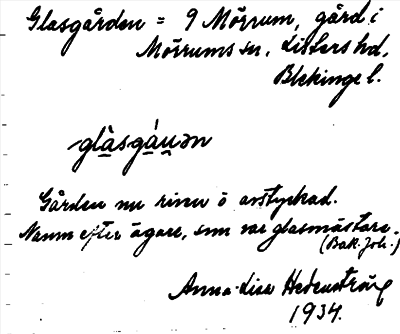 Glasgården = 9 Mörrum, gård i
Mörrums sn, Listers hd,
Blekinge l.
glàsgá̀u̯ən
Gården nu riven o avstyckad.
Namn efter ägare, som var glasmästare.
(Bak. Joh.)
Anna-Lisa Hedenström
1934.